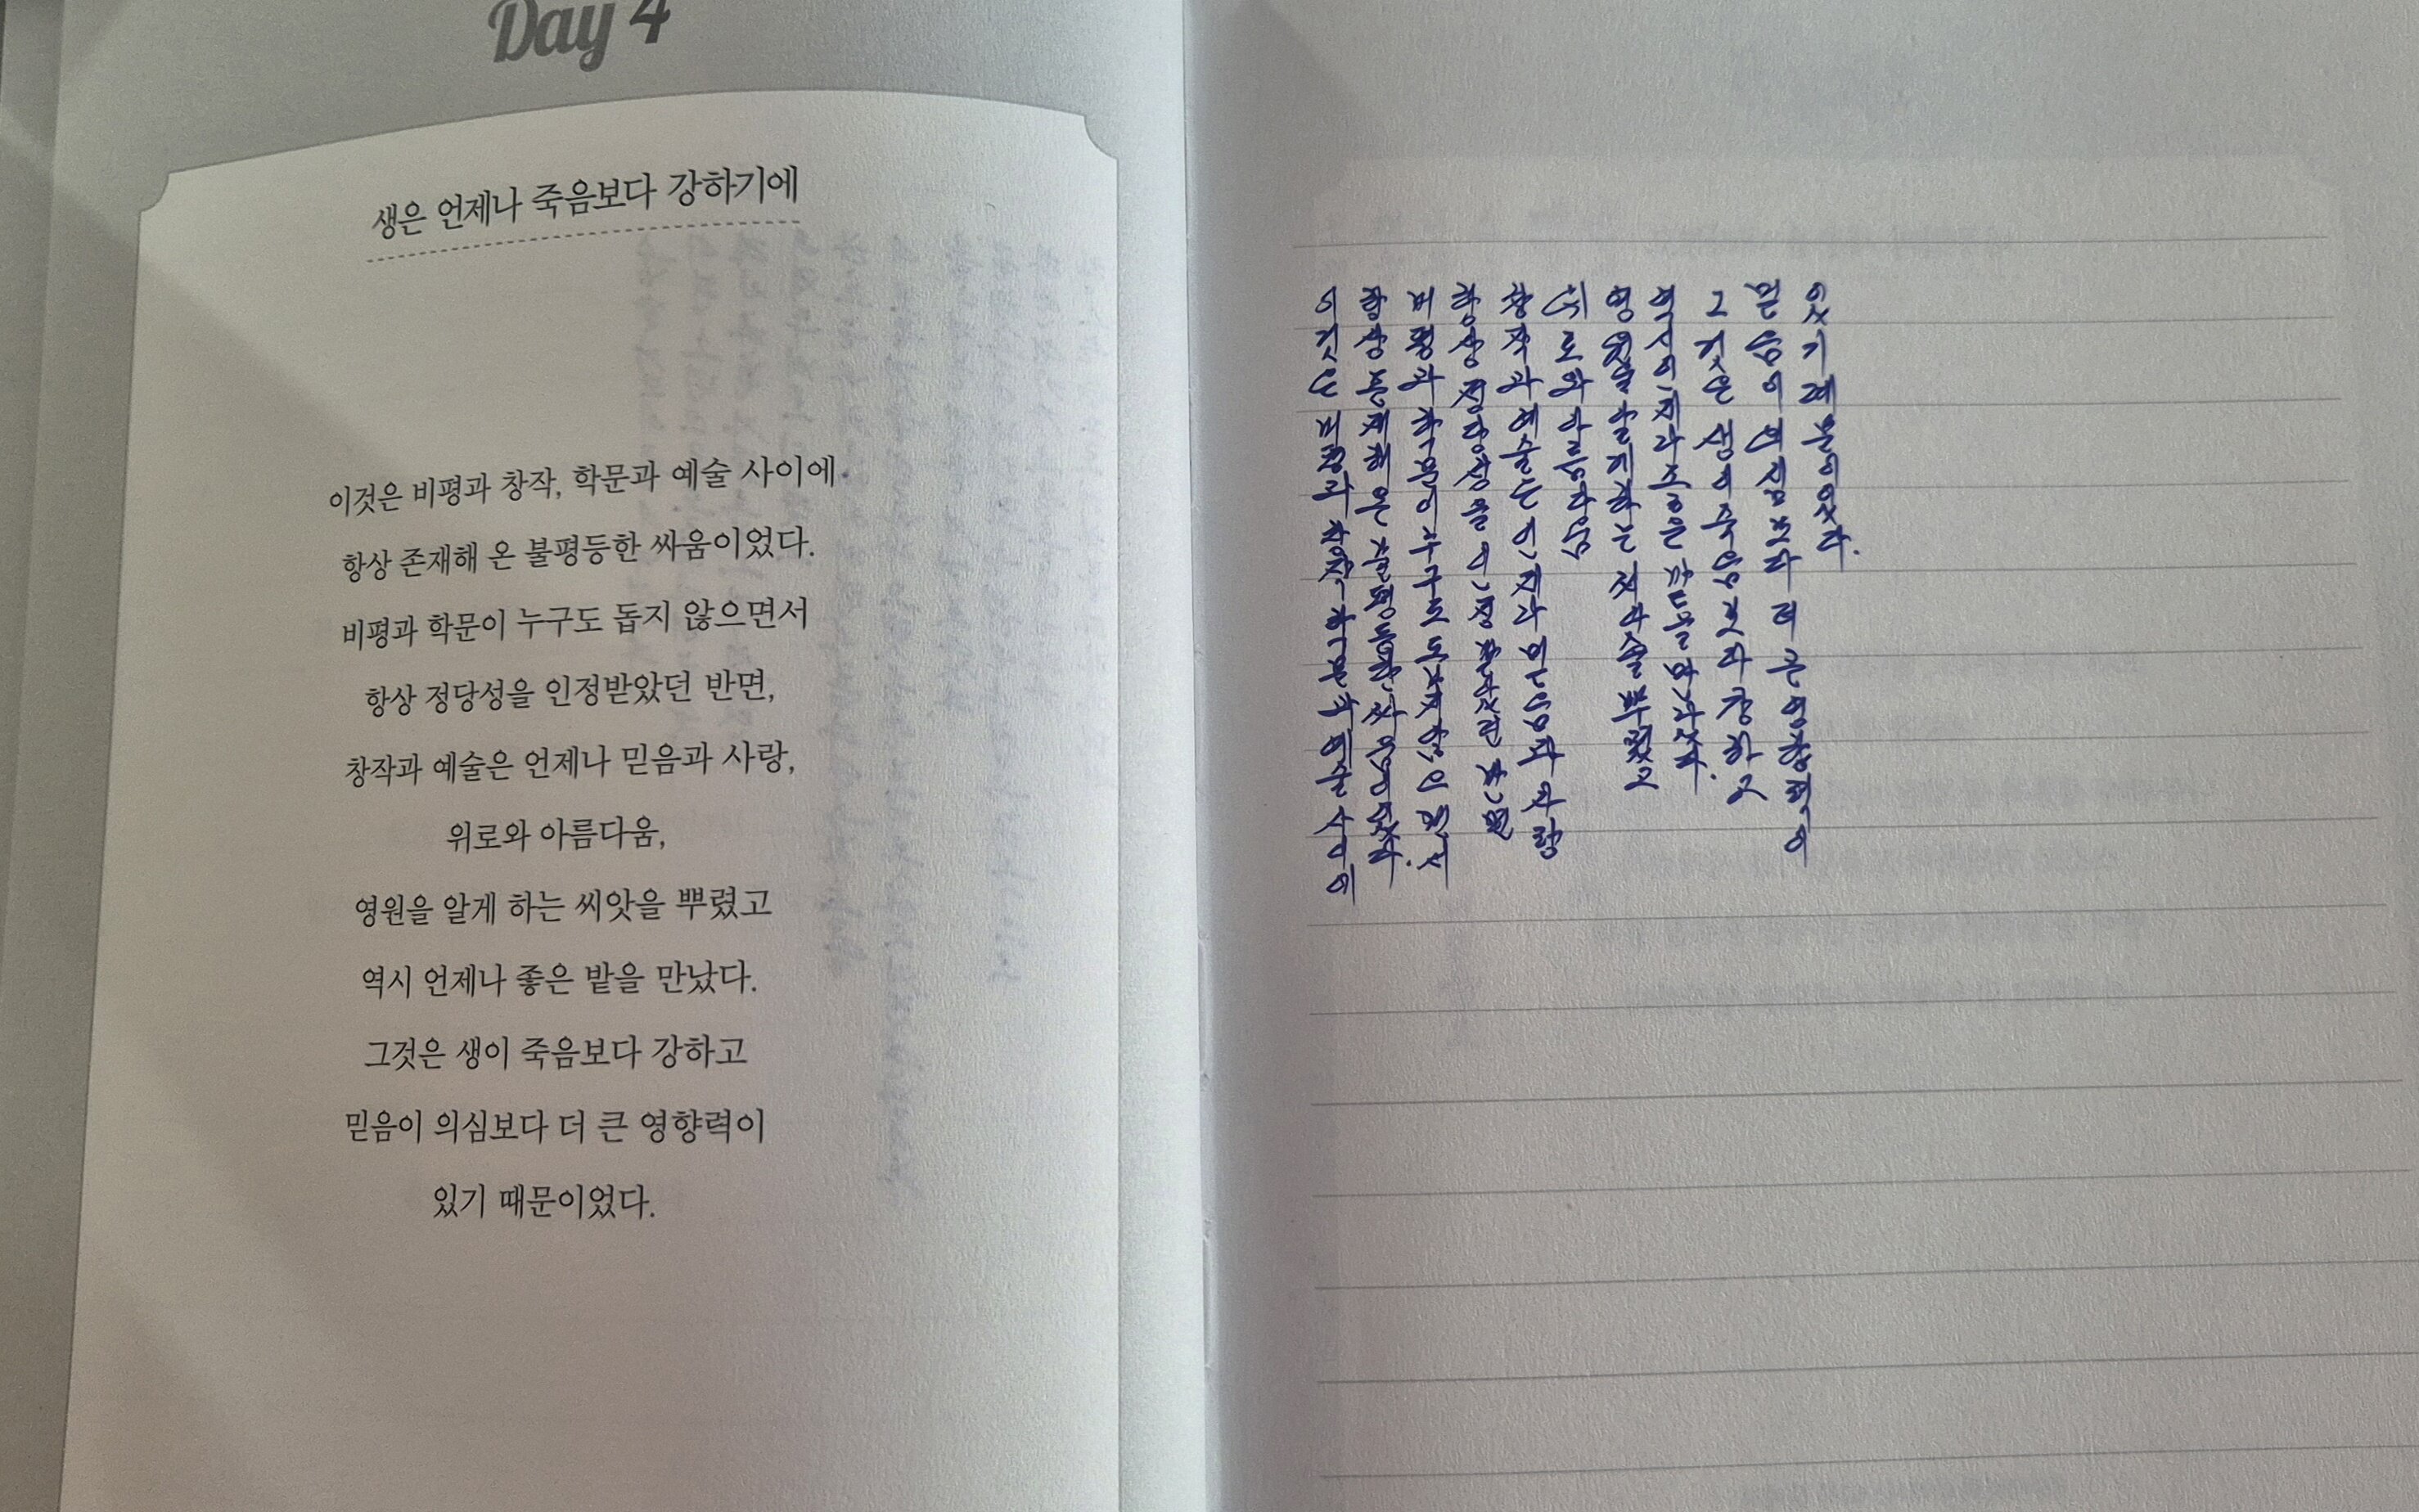 Day 4
생은 언제나 죽음보다 강하기에
이것은 비평과 창작, 학문과 예술 사이에
항상 존재해 온 불평등한 싸움이었다.
비평과 학문이 누구도 돕지 않으면서
항상 정당성을 인정받았던 반면,
창작과 예술은 언제나 믿음과 사랑,
위로와 아름다움,
영원을 알게 하는 씨앗을 뿌렸고
역시 언제나 좋은 밭을 만났다.
그것은 생이 죽음보다 강하고
믿음이 의심보다 더 큰 영향력이
있기 때문이었다.
이것은 비평과 창작, 학문과 예술 사이에
항상 존재해 온 불평등한 싸움이었다.
비평과 학문이 누구도 돕지 않으면서
항상 정당성을 인정받았던 반면
창작과 예술은 언제나 믿음과 사랑
위로와 아름다움
영원을 알게 하는 씨앗을 뿌렸고
역시 언제나 좋은 밭을 만났다.
그것은 생이 죽음보다 강하고
믿음이 의심보다 더 큰 영향력이
있기 때문이었다.